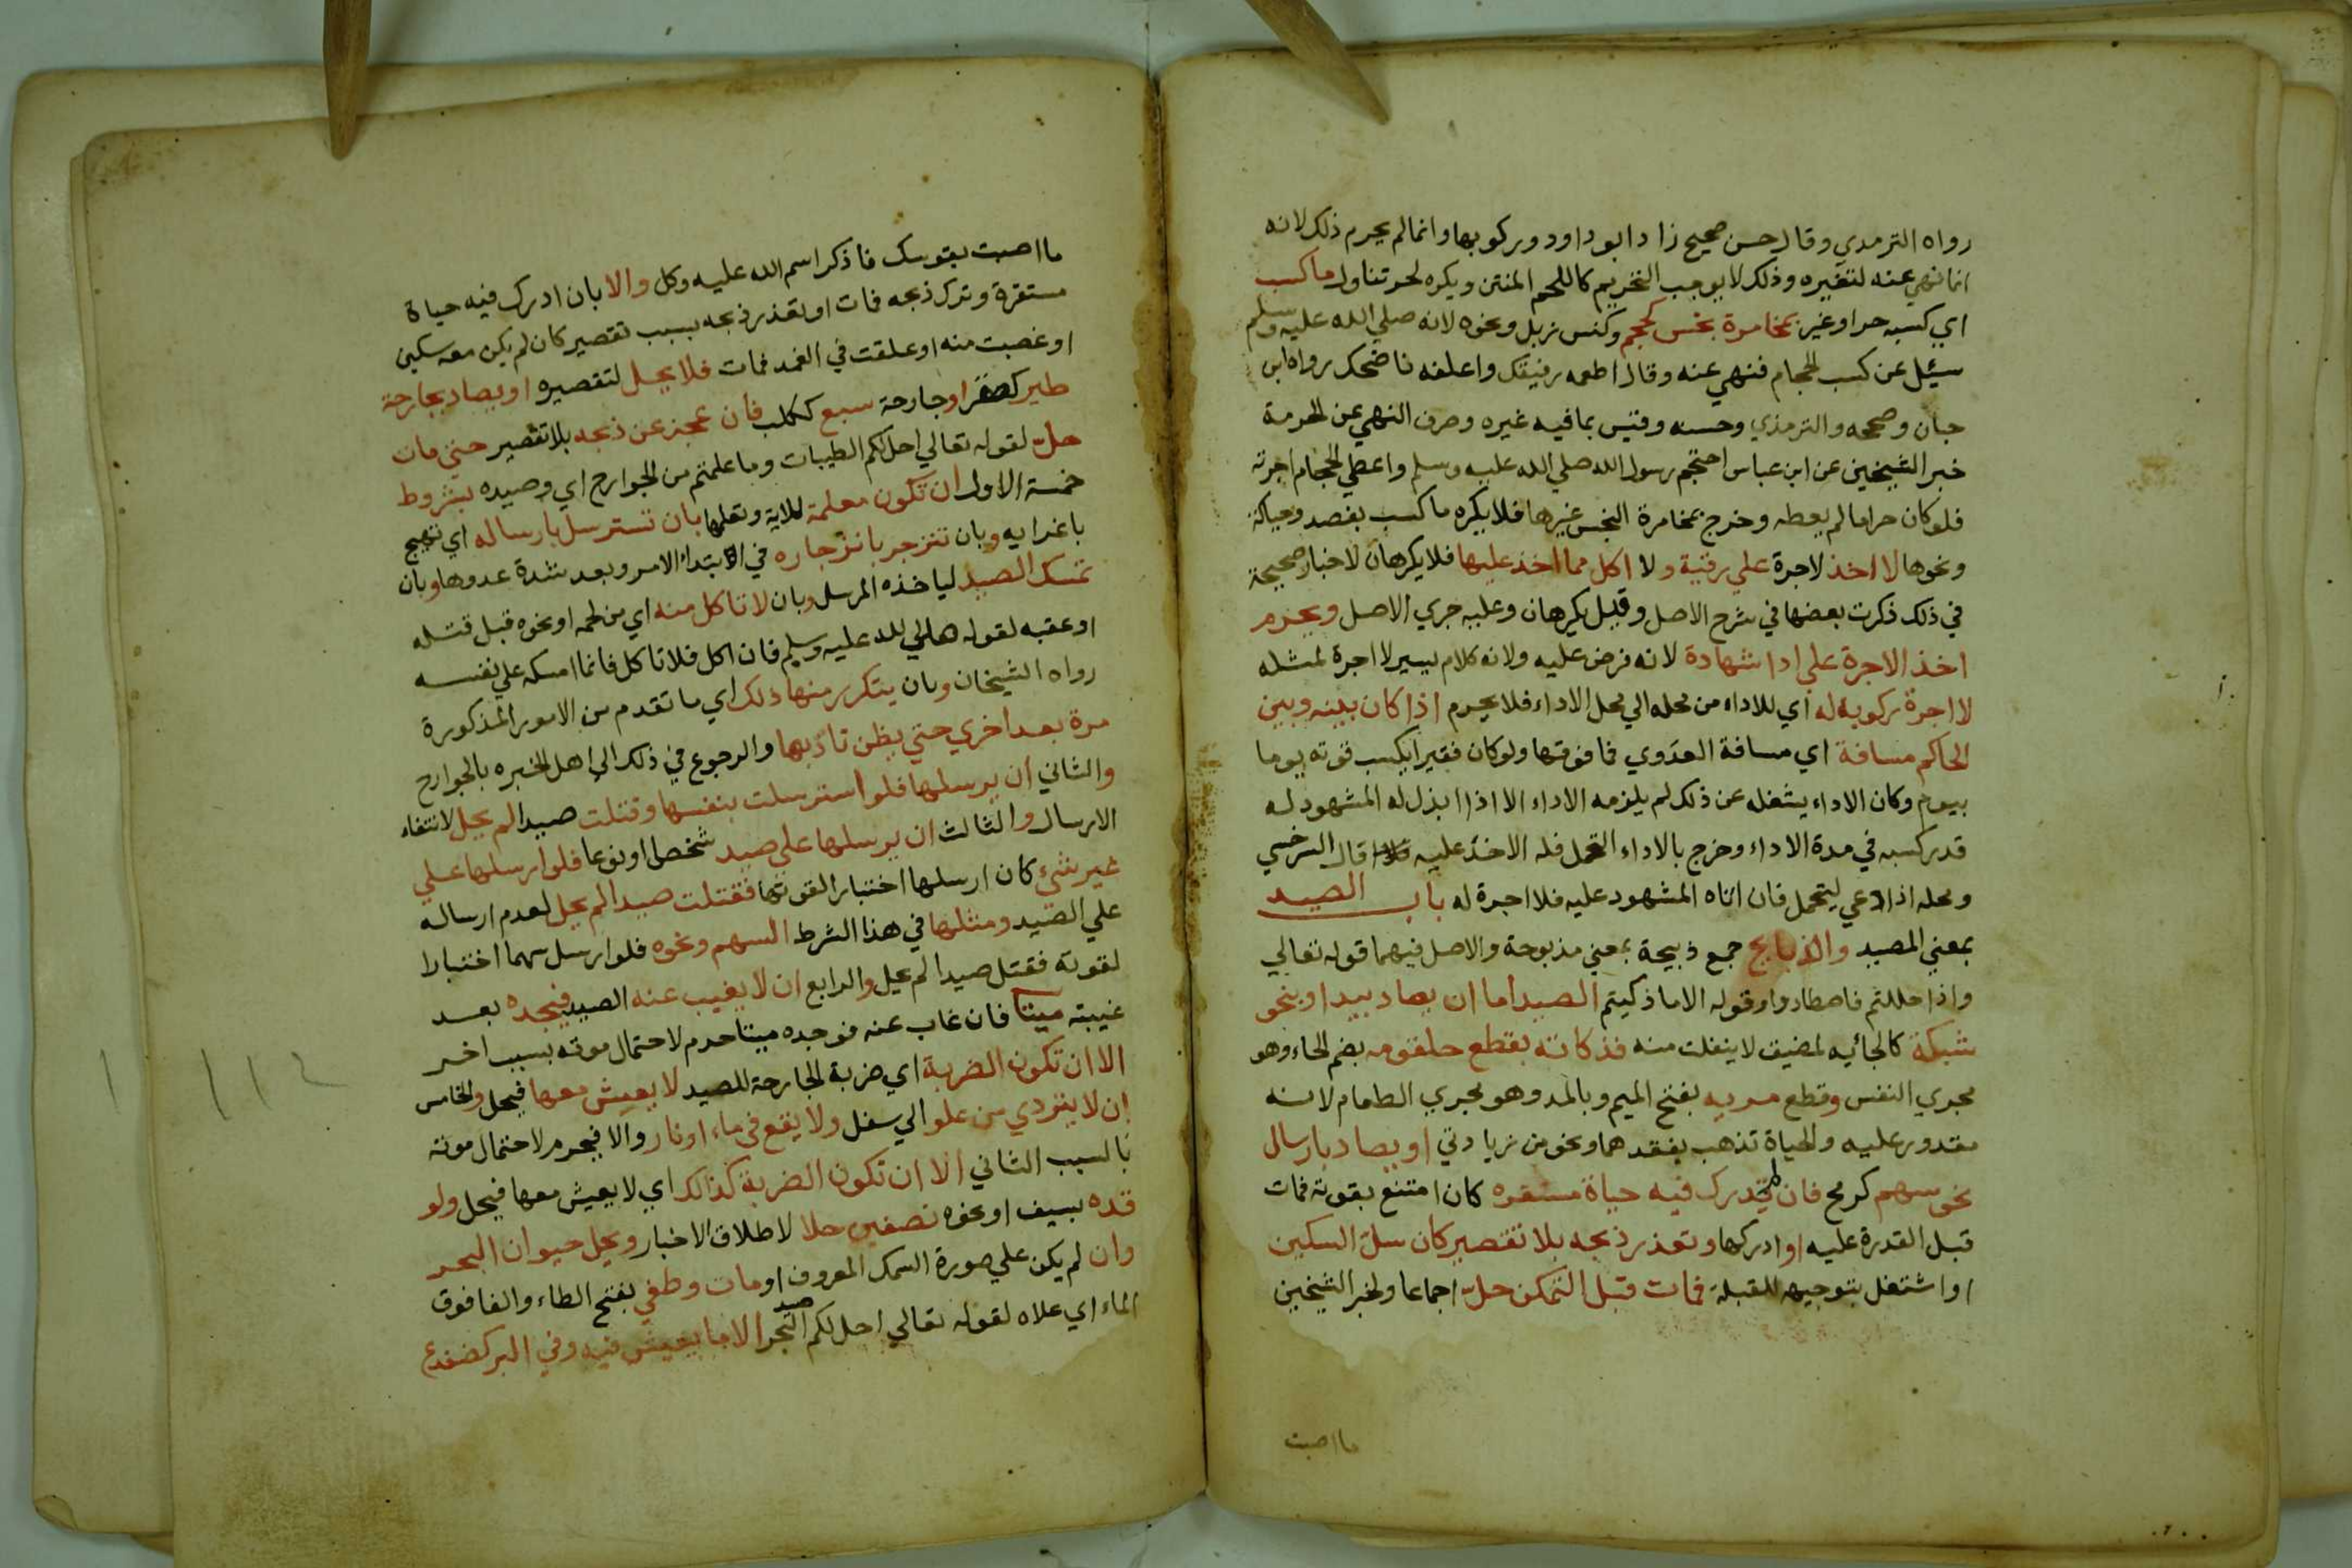 رواه الترمدي وقال حسن صحيح زاد ابو داود وركوبها وانما لم يحرم ذلك لانه
انما نهي عنه لتغيره وذلك لا يوجب التحريم كاللحم المنتن ويكره لحر تناول ما كسب
اي كسبه حر او غير بمخامرة نجس كحجم وكنس زبل ونحوه لانه صلي الله عليه وسلم
سئل عن كسب الحجام فنهي عنه وقال اطعمه رقيقك واعلفه ناضحك رواه ابن
حبان وصححه والترمذي وحسنه وقيس بما فيه غيره وصرف النهي عن الحرمة
خبر الشيخين عن ابن عباس احتجم رسول الله صلي الله عليه وسلم واعطي الحجام اجرته
فلو كان حراما لم يعطه وخرج بمخامرة النجس غيرها فلا يكره ما كسب بفصد وحياكة
ونحوها لا اخذ لاجرة علي رقية ولا اكل مما اخذ عليها فلا يكرهان لاخبار صحيحة
في ذلك ذكرت بعضها في شرح الاصل وقيل يكرهان وعليه جري الاصل ويحرم
اخذ الاجرة علي ادا شهادة لانه فرض عليه ولانه كلام يسير لا اجرة لمثله
لا اجرة ركوبه له اي للاداء من محله الي محل الاداء فلا يحرم اذا كان بينه وبين
الحاكم مسافة اي مسافة العدوي فما فوقها ولو كان فقيرا يكسب قوته يوما
بيوم وكان الاداء يشغله عن ذلك لم يلزمه الاداء الا اذا ابذل له المشهود له
قدر كسبه في مدة الاداء وخرج بالاداء التحمل فله الاخذ عليه قال السرخسي
ومحله اذا دعي ليتحمل فان اتاه المشهود عليه فلا اجرة له باب الصيد
بمعني المصيد والذبايح جمع ذبيحة بمعني مذبوحة والاصل فيهما قوله تعالي
واذا حللتم فاصطادوا وقوله الا ما ذكيتم الصيد اما ان يصاد بيد او بنحو
شبكة كالجائيه لمضيق لا ينفلت منه فذكاته بقطع حلقومه بضم الحاء وهو
مجري النفس وقطع مريه بفتح الميم وبالمد وهو مجري الطعام لانه
مقدور عليه والحياة تذهب بفقدهما ونحو من زيادتي او يصاد بارسال
نحو سهم كرمح فان لم يدرك فيه حياة مستقره كان امتنع بقوته فمات
قبل القدرة عليه او ادركها وتعذر ذبحه بلا تقصير كان سل السكين
او اشتغل بتوجيهه للقبلة فمات قبل التمكن حل اجماعا ولخبر الشيخين
ما اصبت
ما اصبت بقوسك فاذكر اسم الله عليه وكل والا بان ادرك فيه حياة
مستقرة وترك ذبحه فمات او تعذر ذبحه بسبب تقصير كان لم يكن معه سكين
او غصبت منه او علقت في الغمد فمات فلا يحل لتقصيره او يصاد بجارحة
طير كصقر او جارحة سبع ككلب فان عجز عن ذبحه بلا تقصير حتي مات
حل لقوله تعالي احل لكم الطيبات وما علمتم من الجوارح اي وصيده بشروط
خمسة الاول ان تكون معلمة للاية وتعلمها بان تسترسل بارساله اي تهيج
باغرايه وبان تنزجر بانزجاره في الابتداء الامر وبعد شدة عدوها وبان
تمسك الصيد لياخذه المرسل وبان لا تاكل منه اي من لحمه او نحوه قبل قتله
او عقبه لقوله صلي الله عليه وسلم فان اكل فلا تاكل فانما امسكه علي نفسه
رواه الشيخان وبان يتكرر منها ذلك اي ما تقدم من الامور المذكورة
مرة بعد اخري حتي يظن تادبها والرجوع في ذلك الي اهل الخبره بالجوارح
والثاني ان يرسلها فلو استرسلت بنفسها وقتلت صيدا لم يحل لانتفاء
الارسال والثالث ان يرسلها علي صيد شخصا او نوعا فلو ارسلها علي
غير شيء كان ارسلها اختبارا لقوتها فقتلت صيدا لم يحل لعدم ارساله
علي الصيد ومثلها في هذا الشرط السهم ونحوه فلو ارسل سهما اختبارا
لقوته فقتل صيدا لم يحل والرابع ان لا يغيب عنه الصيد فيجده بعد
غيبته ميتا فان غاب عنه فوجده ميتا حرم لاحتمال موته بسبب اخر
الا ان تكون الضربة اي ضربة الجارحة للصيد لا يعيش معها فيحل والخامس
ان لا يتردي من علو الي سفل ولا يقع في ماء او نار والا فيحرم لاحتمال موته
بالسبب الثاني الا ان تكون الضربة كذالك اي لا يعيش معها فيحل ولو
قده بسيف او نحوه نصفين حلا لاطلاق الاخبار ويحل حيوان البحر
وان لم يكن علي صورة السمك المعروف او مات وطفي بفتح الطاء والفا فوق
الماء اي علاه لقوله تعالي احل لكم صيد البحر الا ما يعيش فيه وفي البر كضفدع